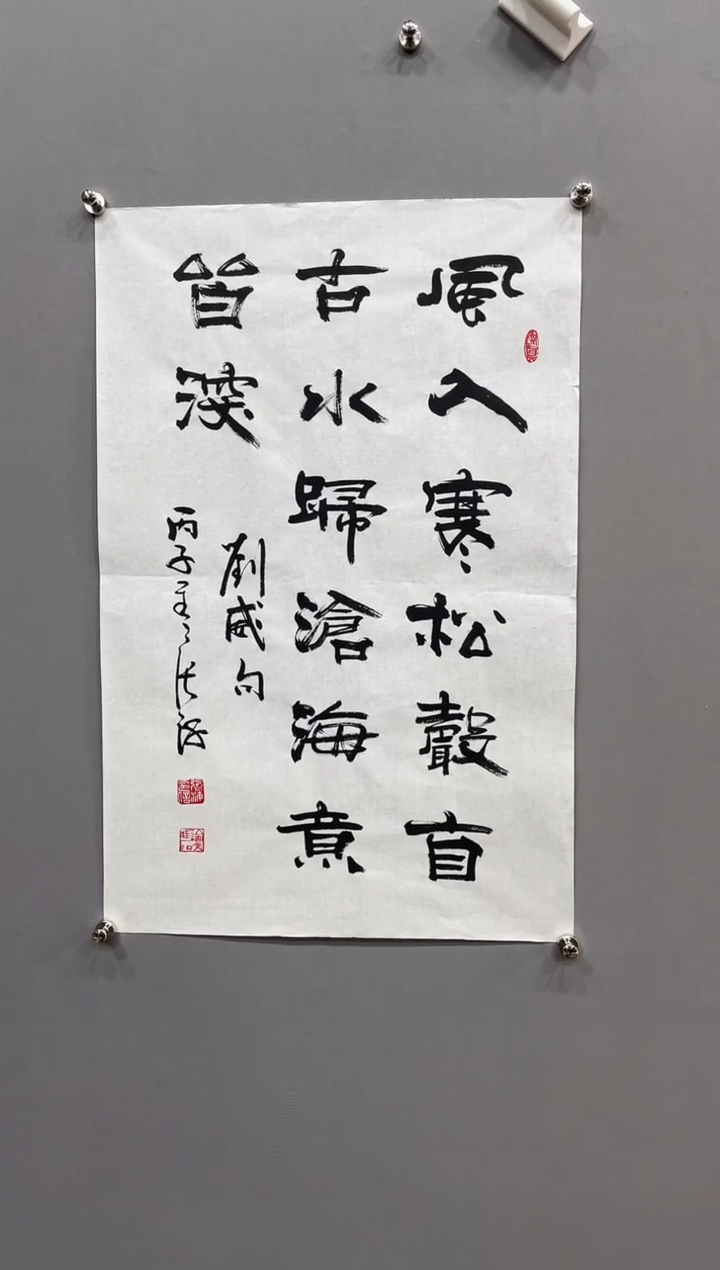 風入寒松聲自
古水歸滄海意
皆深
劉威句
丙子